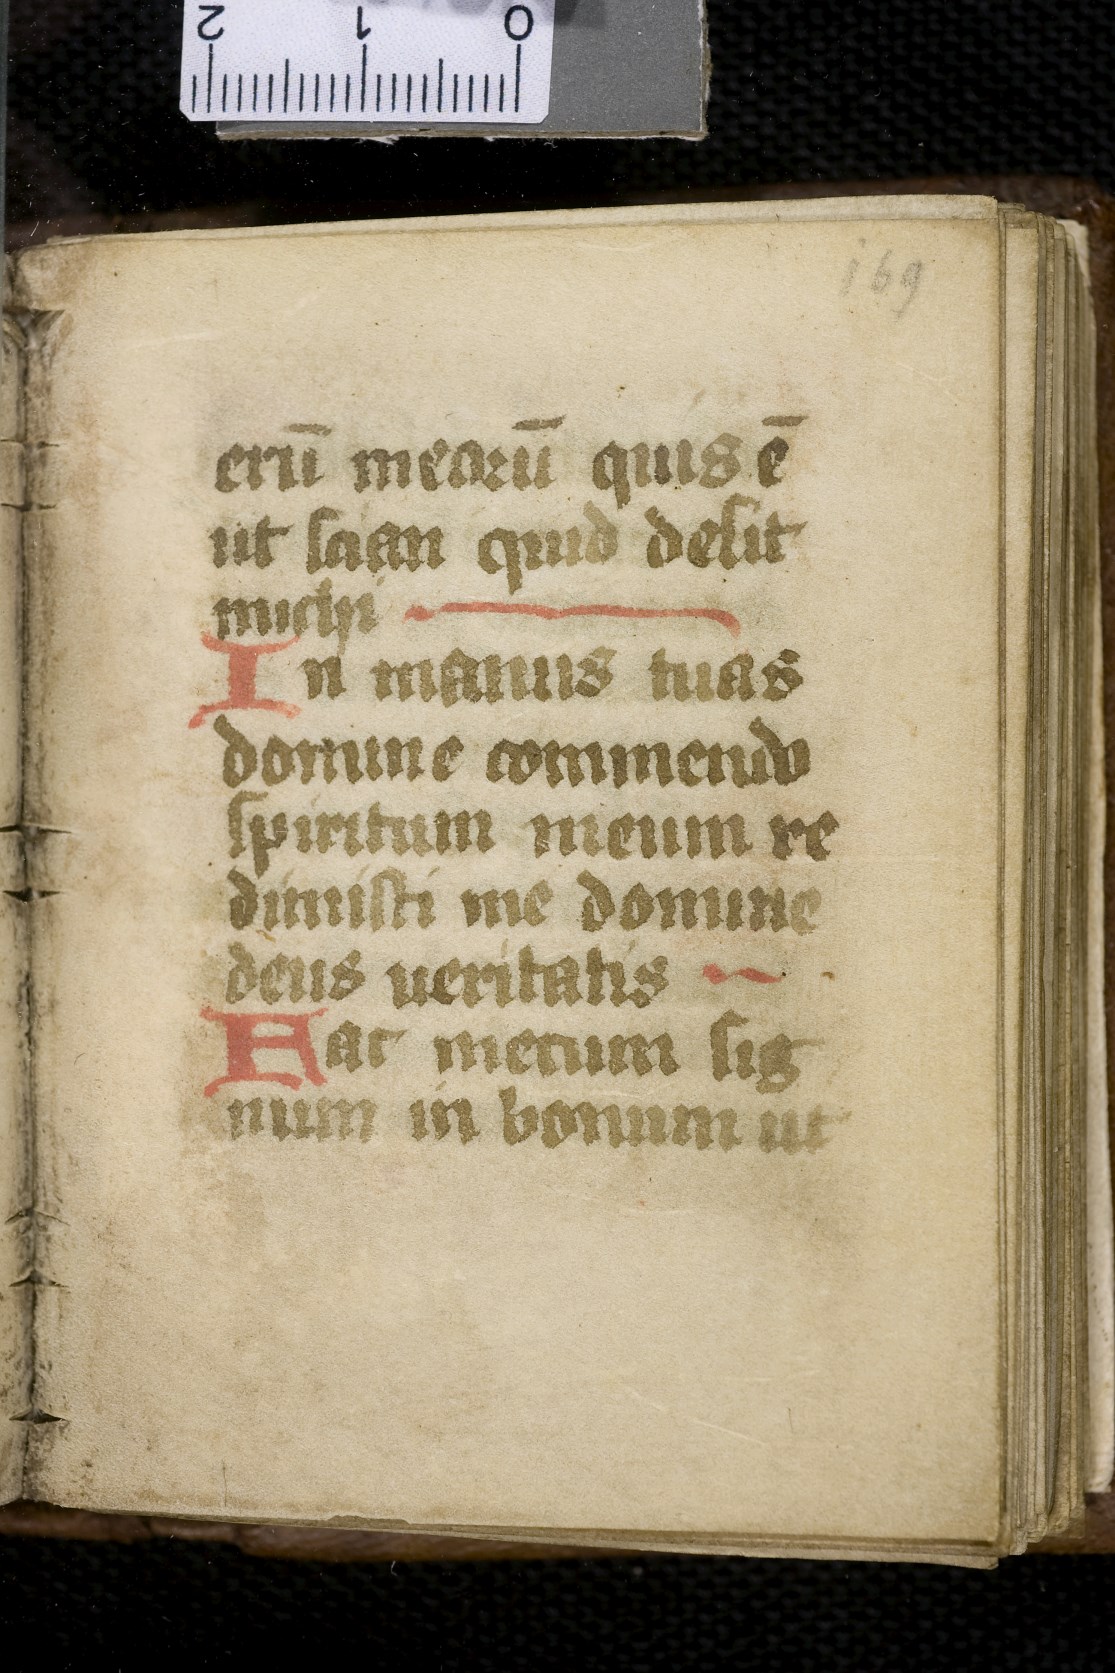 2 1 0
169
erū mearū quis ē
ut scian quid desit
michi
In manus tuas
domine commendo
spiritum meum re
dimisti me domine
deus ueritatis
Fac mecum sig
num in bonum ut